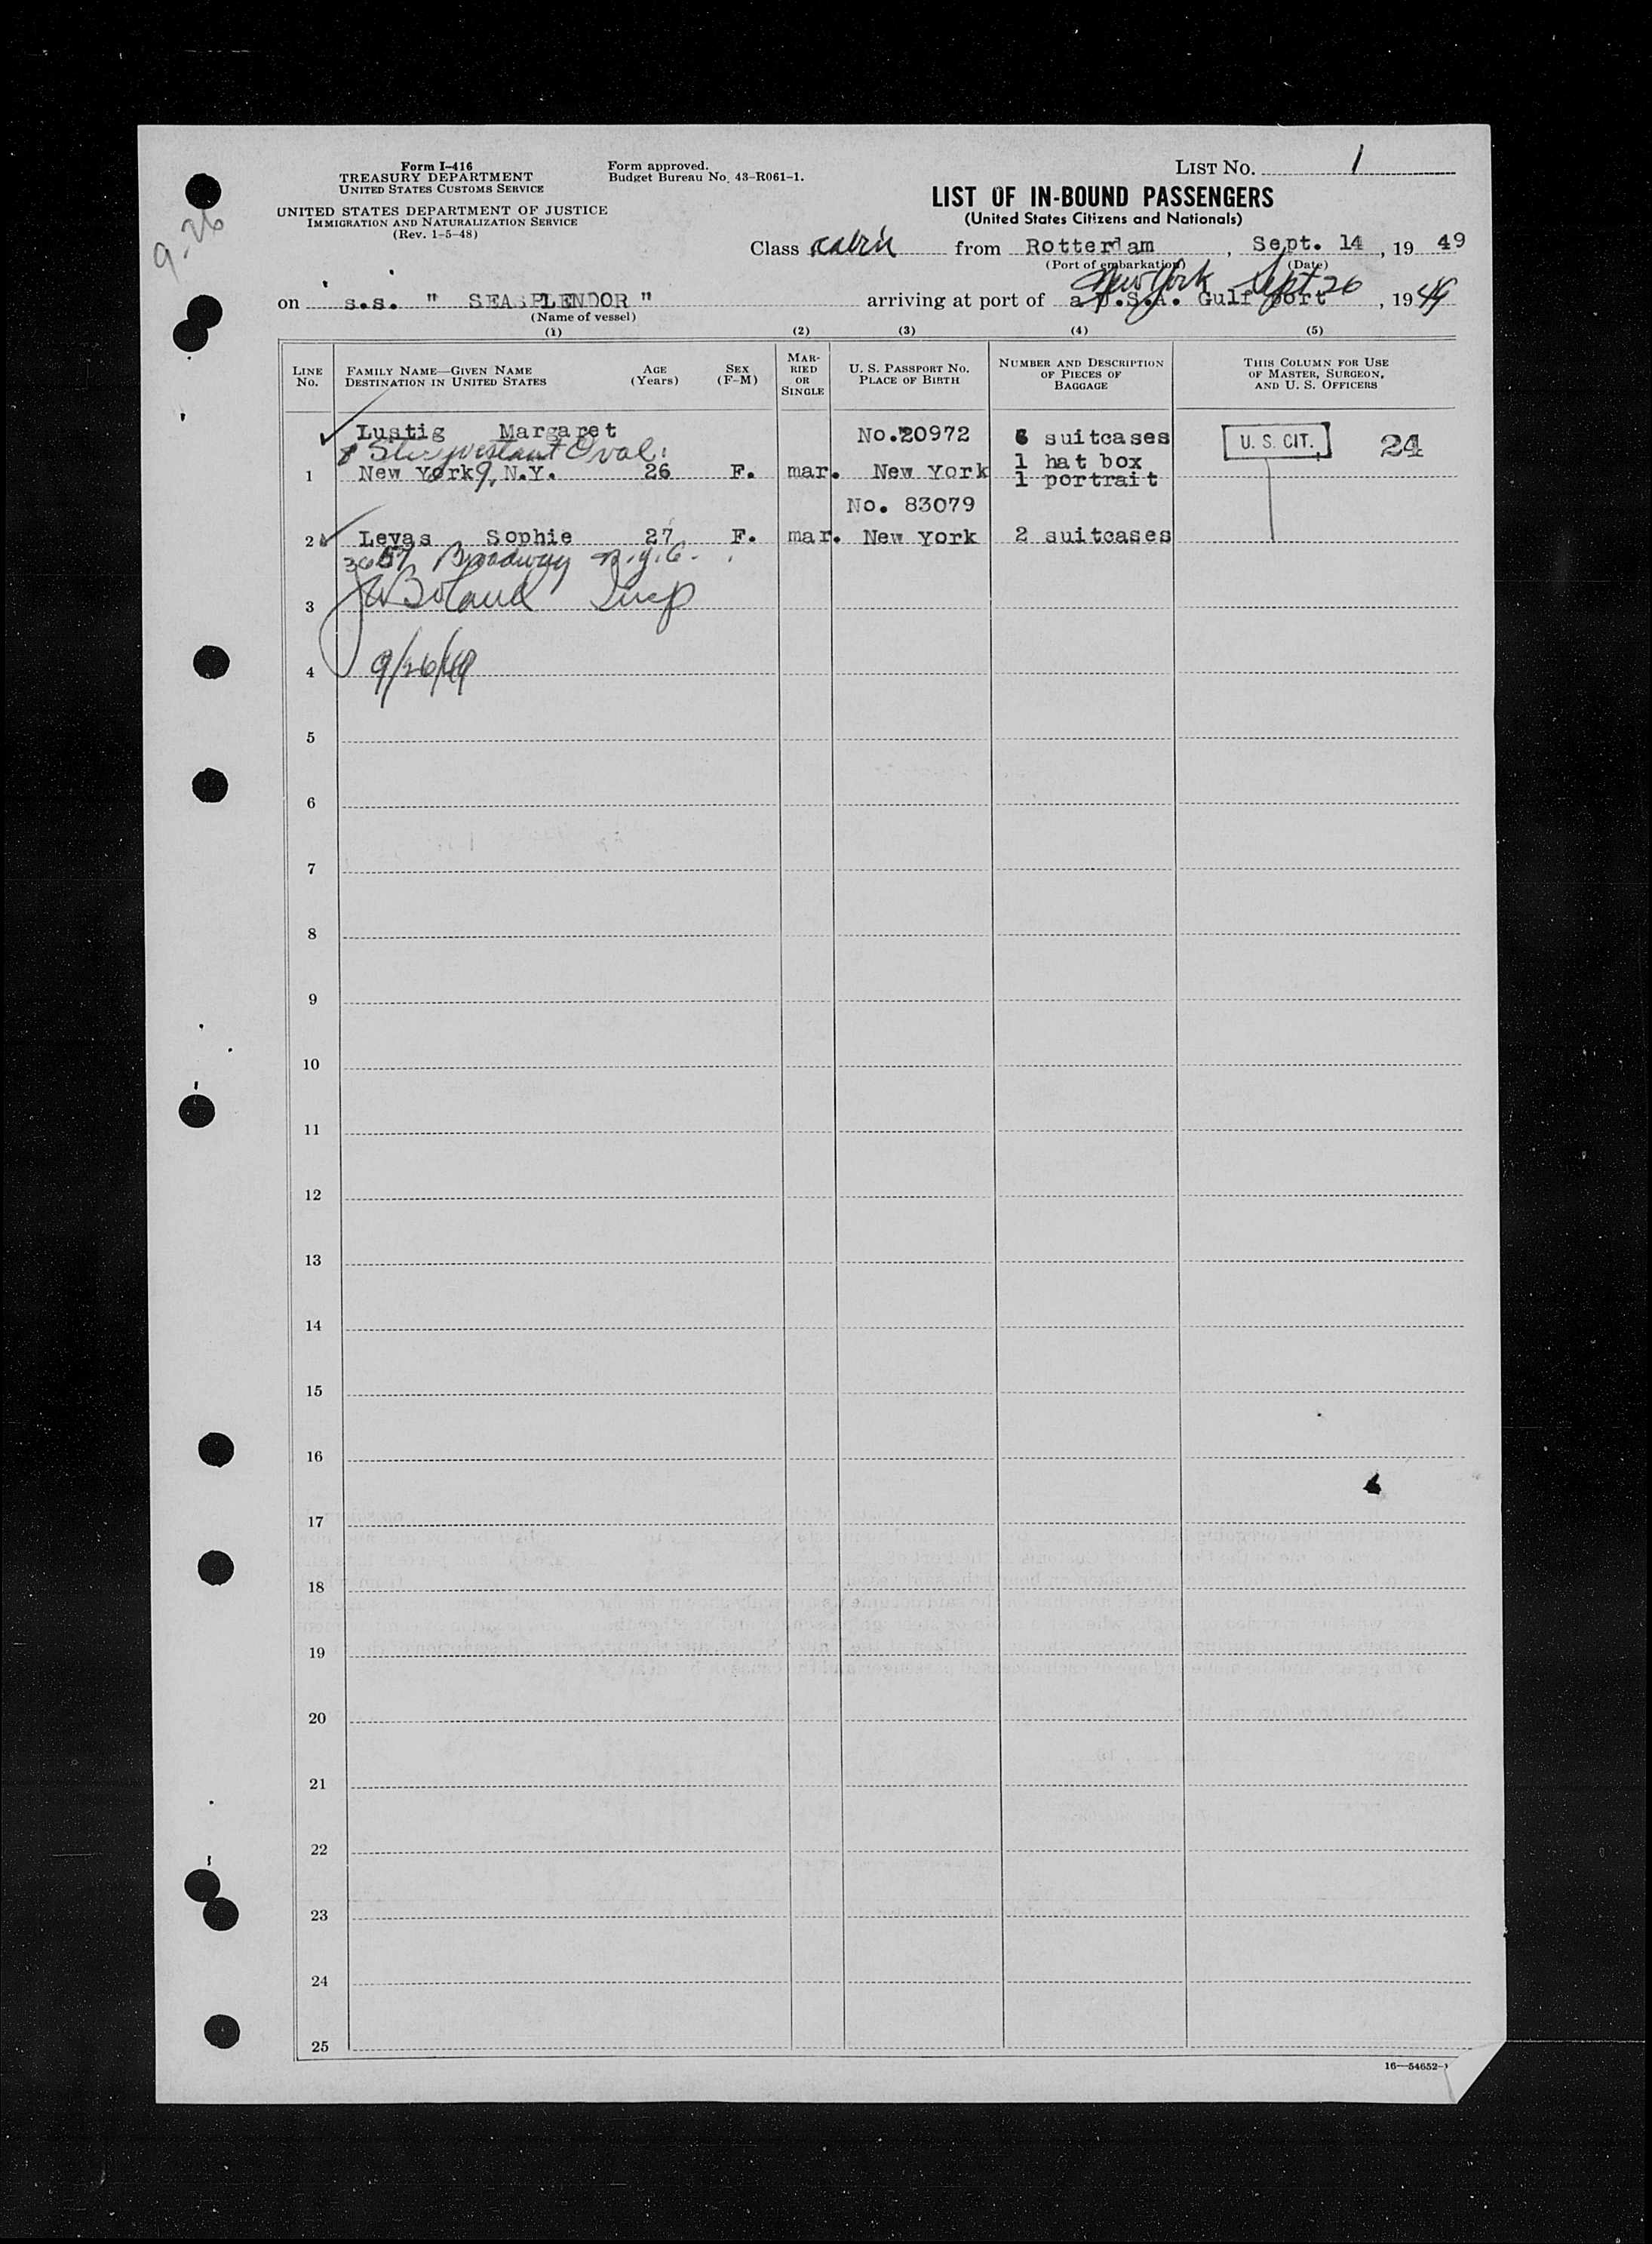 Form I-416
TREASURY DEPARTMENT
UNITED STATES CUSTOMS SERVICE
UNITED STATES DEPARTMENT OF JUSTICE
IMMIGRATION AND NATURALIZATION SERVICE
(Rev. 1-5-48)
Form approved.
Budget Bureau No. 43-R061-1.
LIST NO. 1
LIST OF IN-BOUND PASSENGERS
(United States Citizens and Nationals)
9-26
Class cabin from Rotterdam, Sept. 14, 1949
(Port of embarkation) (Date)
New York Sept 26
on s.s. " SEASPLENDOR " arriving at port of a U.S.A. Gulf port, 1949
(Name of vessel)
(1) (2) (3) (4) (5)
LINE No. FAMILY NAME—GIVEN NAME DESTINATION IN UNITED STATES AGE (Years) SEX (F-M) MARRIED OR SINGLE U. S. PASSPORT NO. PLACE OF BIRTH NUMBER AND DESCRIPTION OF PIECES OF BAGGAGE THIS COLUMN FOR USE OF MASTER, SURGEON, AND U. S. OFFICERS
Lustig Margaret No. 20972 6 suitcases U. S. CIT. 24
Stuyvestant Oval 1 hat box
1 New York 9, N.Y. 26 F. mar. New York 1 portrait
No. 83079
2 Levas Sophie 27 F. mar. New York 2 suitcases
Broadway N.Y.C.
3 Boland Insp
4 9/26/49
5
6
7
8
9
10
11
12
13
14
15
16
17
18
19
20
21
22
23
24
25
16—54652-1